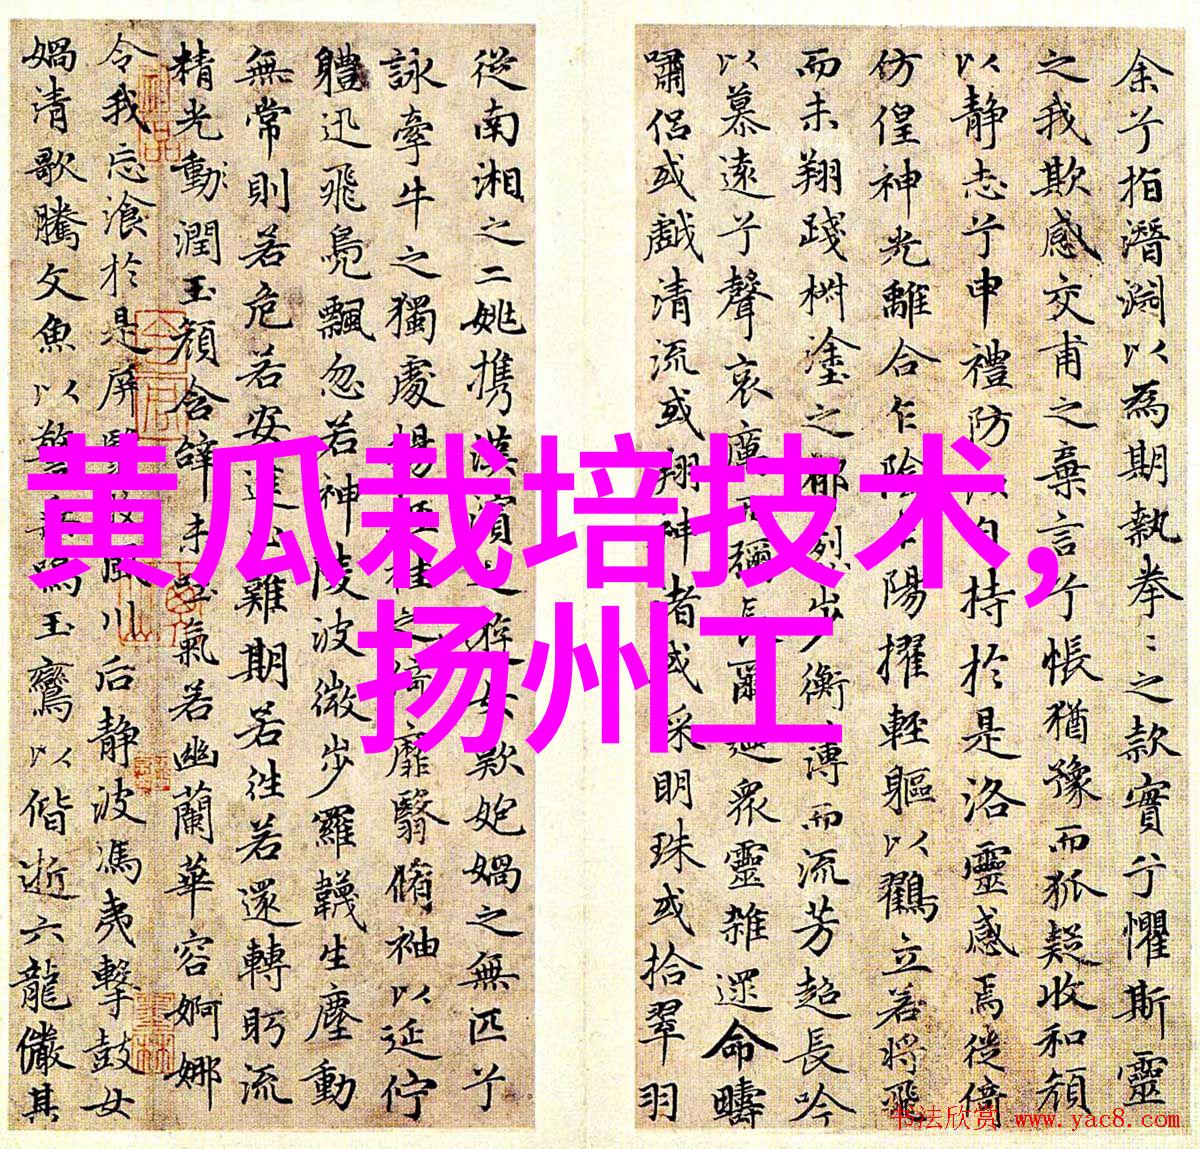 余兮指潛淵以為期執拳〻之款實兮懼斯靈
之我欺感交甫之棄言兮悵猶豫而狐疑收和顏
以静志兮申禮防以自持於是洛靈感焉徙倚
仿偟神光離合乍陰乍陽擢輕軀以鸛立若將飛
而未翔踐椒塗之郁烈步衡薄而流芳超長吟
以慕遠兮聲哀厲而彌長爾迺眾靈雜遝命疇
嘯侶或戲清流或翔神渚或采明珠或拾翠羽
從南湘之二姚攜漢濱之遊女歎匏媧之無匹兮
詠牽牛之獨處揚輕袿之猗靡翳脩袖以延佇
體迅飛鳧飄忽若神陵波微步羅韈生塵動
無常則若危若安進止難期若往若還轉眄流
精光動潤玉顏含辭未吐氣若幽蘭華容婀娜
令我忘飡於是屏翳收風川后静波馮夷擊鼓女
媧清歌騰文魚以警乘鳴玉鸞以偕逝六龍儼其
黄瓜栽培技术,
扬州工
书法欣赏 www.yac8.com